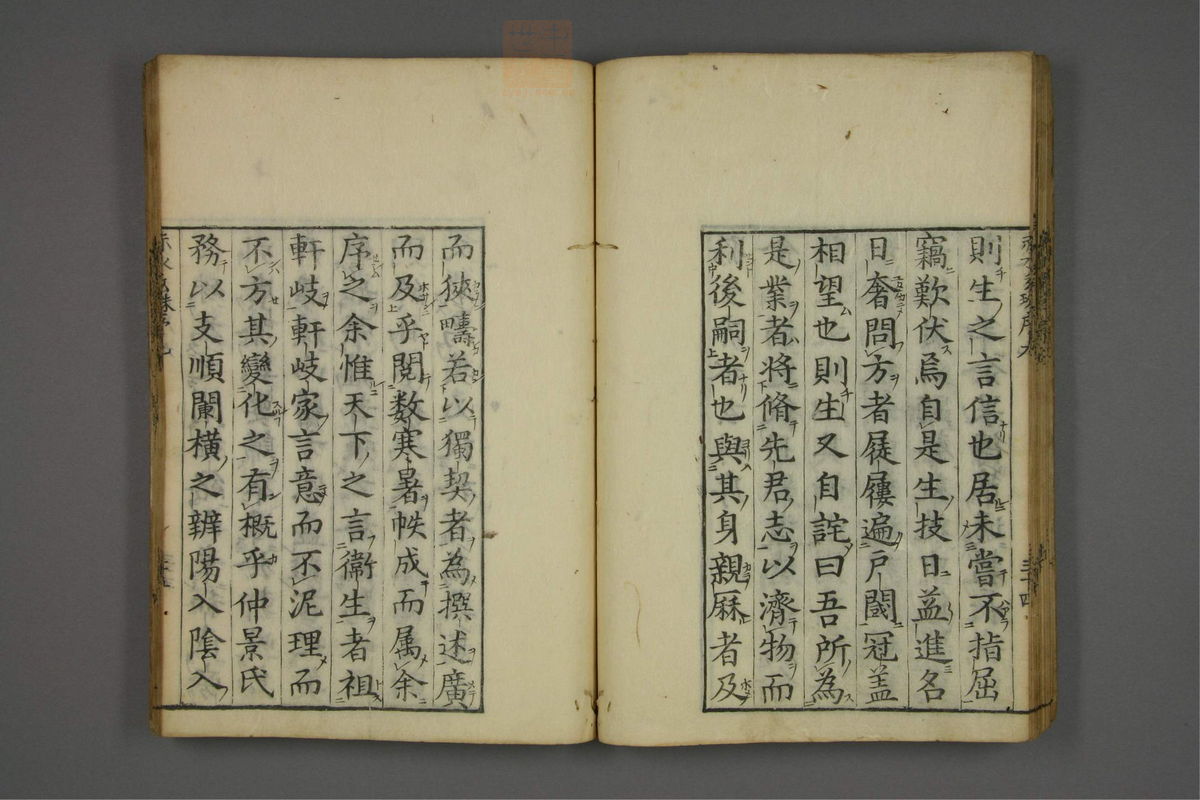 則生之言信也居未嘗不指屈
竊歎伏焉自是生技日益進名
日奢問方者屐屨遍戶閾冠盖
相望也則生又自詫曰吾所為
是業者将脩先君志以濟物而
利後嗣者也與其身親厤者及
而狹疇若以獨契者為撰述廣
而及乎閱数寒暑帙成而属余
序之余惟天下之言衞生者祖
軒岐軒岐家言意而不泥理而
不方其變化之有概乎仲景氏
務以支順闌横之辨陽入陰入